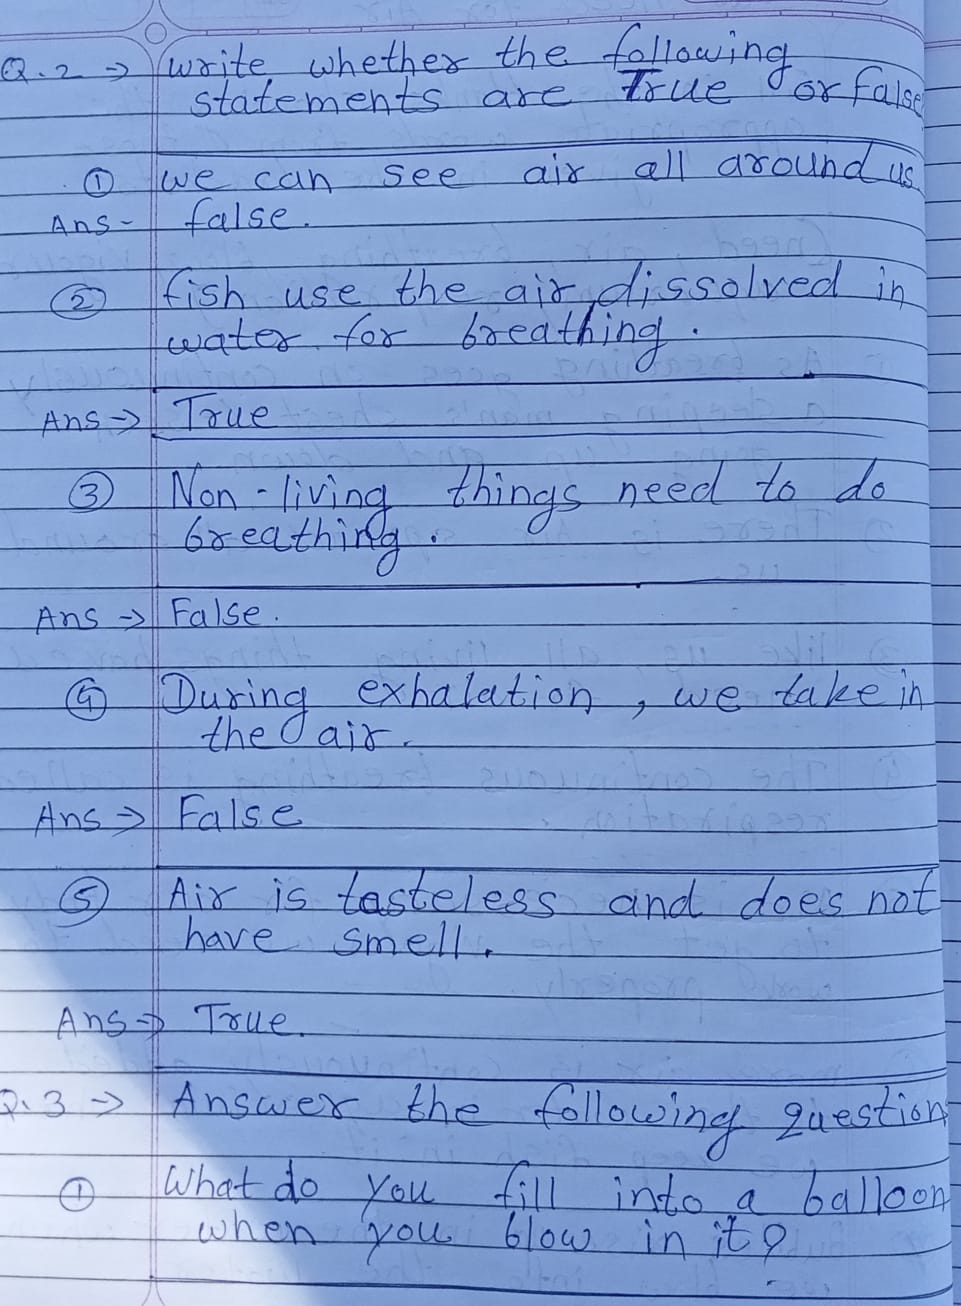 Q.2 → write whether the following
statements are True or false
① we can see air all around us.
Ans - false.
② fish use the air dissolved in
water for breathing.
Ans → True
③ Non-living things need to do
breathing.
Ans → False.
④ During exhalation, we take in
the air.
Ans → False
⑤ Air is tasteless and does not
have smell.
Ans → True.
Q.3 → Answer the following question
① What do you fill into a balloon
when you blow in it?